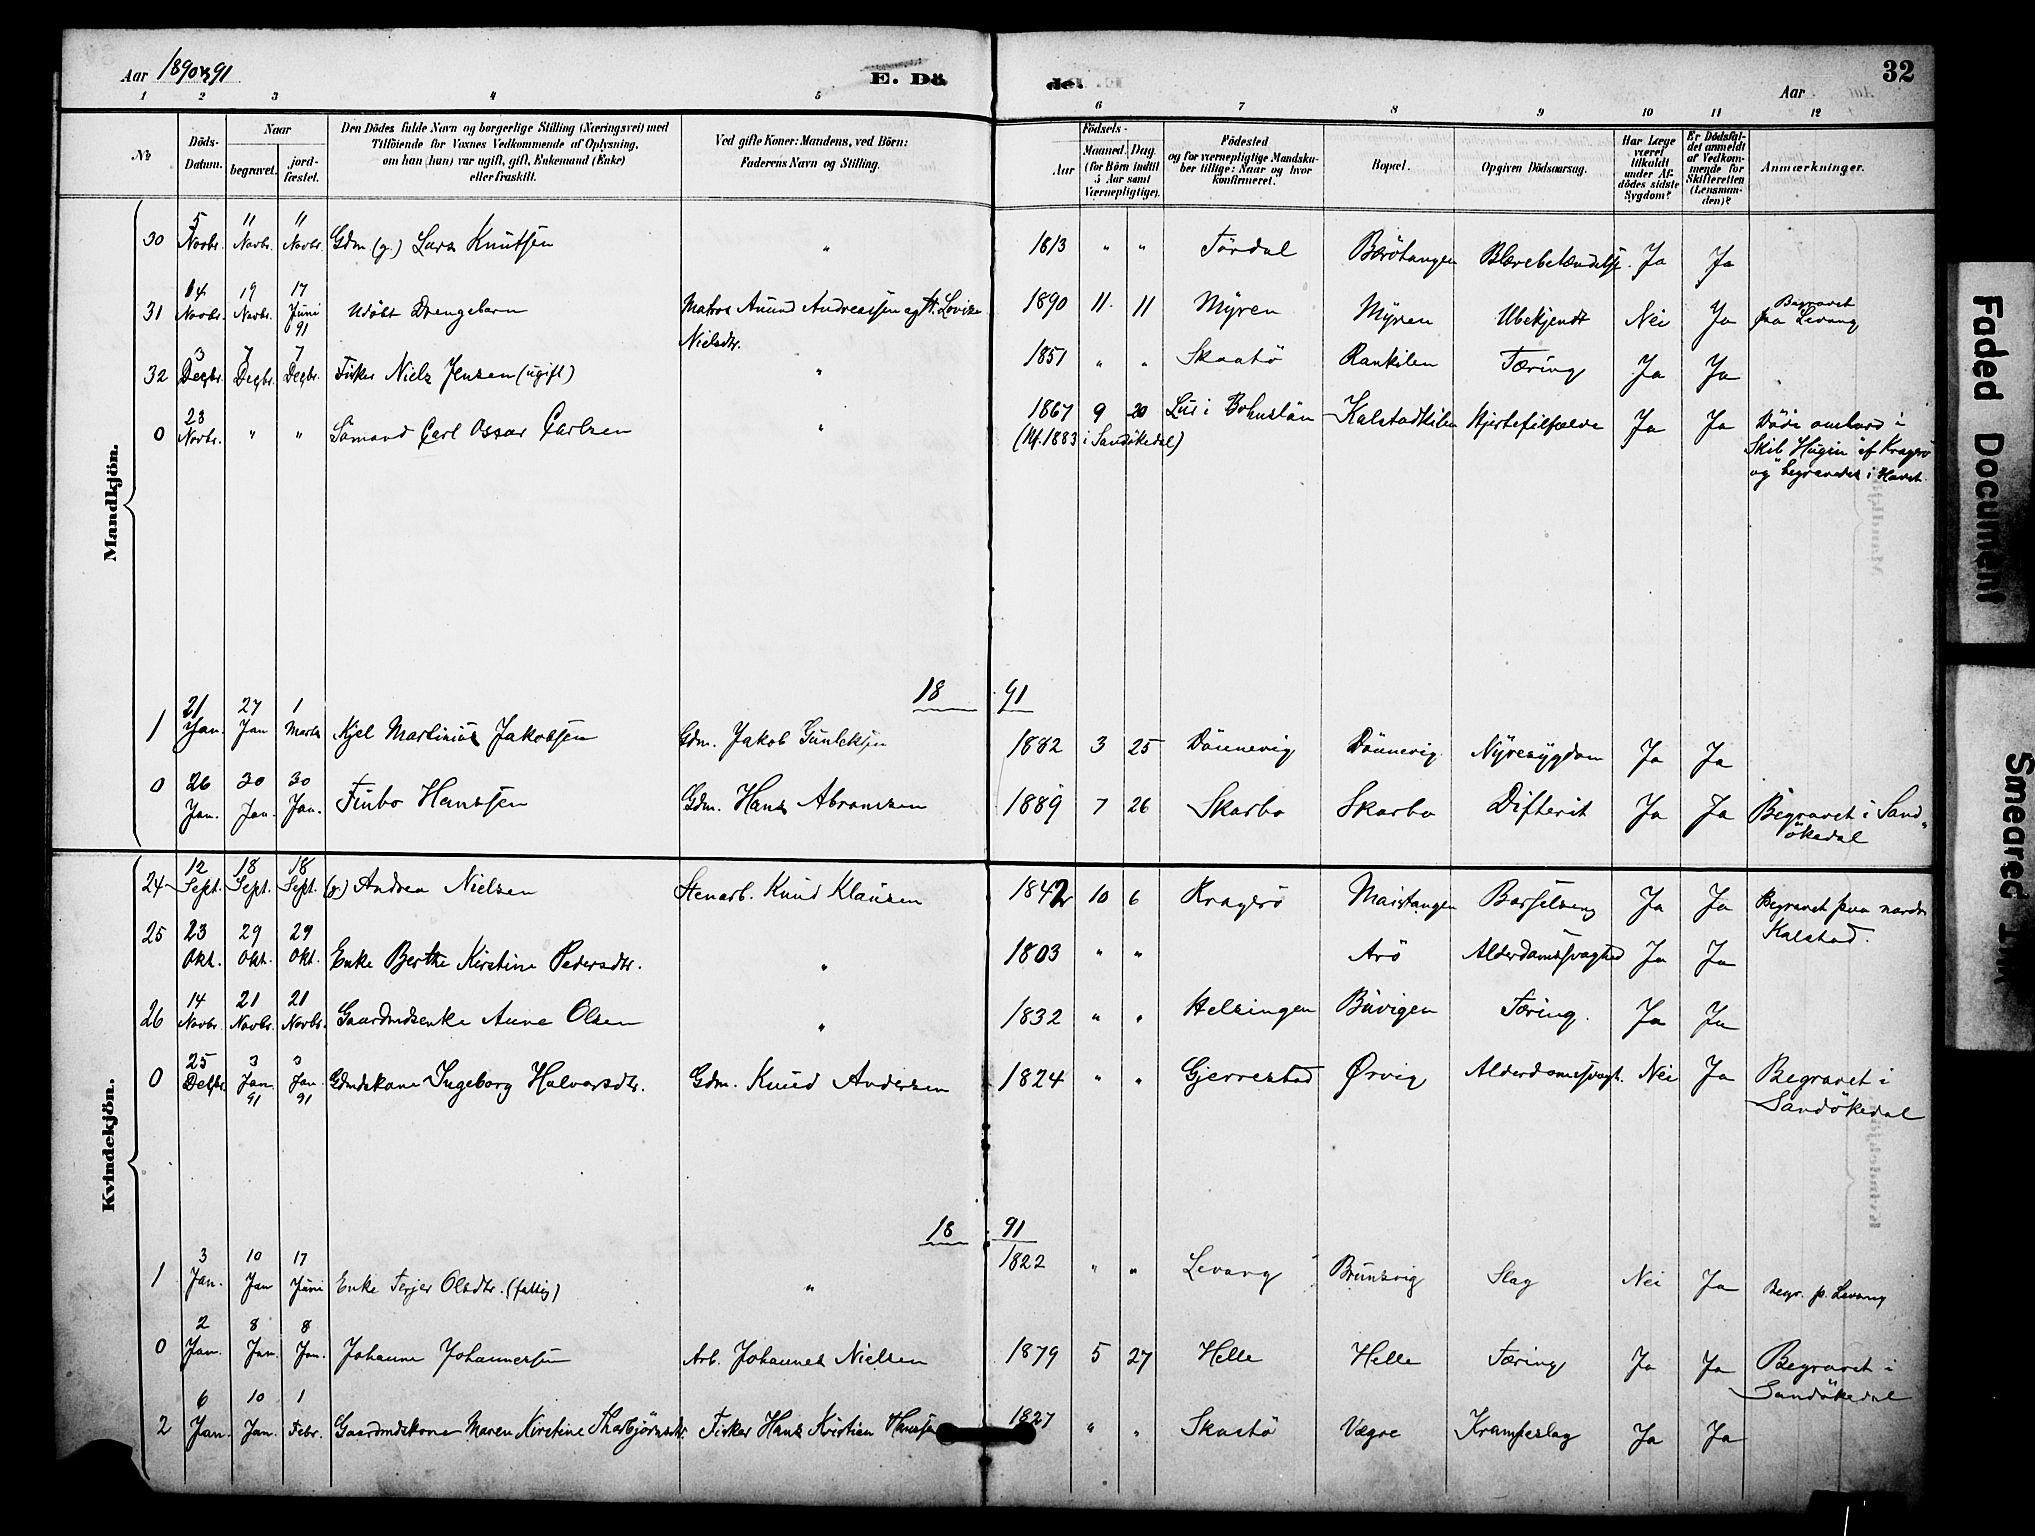 Aar 1890 & 91
E. Dö
de.
Aar
32
1 2 3 4 5 6 7 8 9 10 11 12
№
Döds-Datum.
Naar
begravet.
jord-fæstet.
Den Dödes fulde Navn og borgerlige Stilling (Næringsvei) med
Tilföiende for Voxnes Vedkommende af Oplysning,
om han (hun) var ugift, gift, Enkemand (Enke)
eller fraskilt.
Ved gifte Koner: Mandens, ved Börn:
Faderens Navn og Stilling.
Födsels-
Aar
Maaned. Dag.
(for Börn indtil
5 Aar samt
Værnepligtige).
Födested
og for værnepligtige Mandska-
ber tillige: Naar og hvor
konfirmeret.
Bopæl.
Opgiven Dödsaarsag.
Har Læge
været
tilkaldt
under Af-
dödes sidste
Sygdom?
Er Dödsfal-
det anmeldt
af Vedkom-
mende for
Skifteretten
(Lensman-
den)?
Anmærkninger.
Mandkjön.
30 5 Novbr. 11 Novbr. 11 Novbr. Gdm (g.) Lars Knutsen " 1813 " " Tördal Bärötangen Blærebetændelse. Ja Ja
31 14 Novbr. 19 Novbr. 17 Juni 91 Udöbt Drengebarn Matros Amund Andreassen og H. Lovise 1890 11 11 Myren Myren Ubekjendt Nei Ja Begravet
Nielsdtr. paa Levang
32 3 Decbr. 7 Decbr. 7 Decbr. Fisker Niels Jensen (ugift) " 1851 " " Skaatö Rankilen Tæring Ja Ja
0 23 Novbr. " " Sömand Carl Oscar Carlsen " 1867 9 20 Lus i Bohuslän Kalstadkilen Hjertefeil Ja Ja Döde ombord i
(kf. 1883 i Sandökedal) Skib "Hugin" af Kragerö
og begravedes i Havet.
18 91
1 21 Jan. 27 Jan 1 Marts Kjel Martinius Jakobsen Gdm. Jakob Gunleksen 1882 3 25 Dönnevig Dönnevig Nyresygdom Ja Ja
0 26 Jan. 30 Jan. 30 Jan. Finbo Hanssen Gdm. Hans Abramsen 1889 7 26 Skarbo Skarbo Difterit Ja Ja Begravet i Sand-
ökedal
Kvindekjön.
24 12 Sept. 18 Sept. 18 Sept. (g.) Andrea Nielsen Stenarb. Knud Klausen 1842 10 6 Kragerö Maistangen Barselseng Ja Ja Begravet paa nordre
Kalstad.
25 23 Okt. 29 Okt. 29 Okt. Enke Berthe Kirstine Pedersdtr. " 1803 " " Arö Alderdomssvaghed Ja Ja
26 14 Novbr. 21 Novbr. 21 Novbr. Gaardmdsenke Anne Olsen " 1832 " " Helsingen Buvigen Tæring. Ja Ja
0 25 Decbr 3 Jan. 91 3 Jan. 91 Gdmdskone Ingeborg Halvorsdtr. Gdm. Knud Andersen 1824 " " Gjerrestad Ørvig Alderdomssvagh. Nei Ja Begravet i
Sandökedal
18 91
1 3 Jan. 10 Jan 17 Juni Enke Terjer Olsdtr. (fattig) " 1822 " " Levang Brunsvig Slag Nei Ja Begr. p. Levang
0 2 Jan. 8 Jan. 8 Jan. Johanne Johannessen Arb. Johannes Nielsen 1879 5 27 Helle Helle Tæring Ja Ja Begravet i
Sandökedal
2 6 Jan. 10 Jan. 1 Febr. Gaardmdskone Maren Kirstine Thorbjörnsdtr. Fisker Hans Kristian Hansen 1827 " " Skaatö Vægre Krampeslag Ja Ja
Faded Document
Smeared Ink